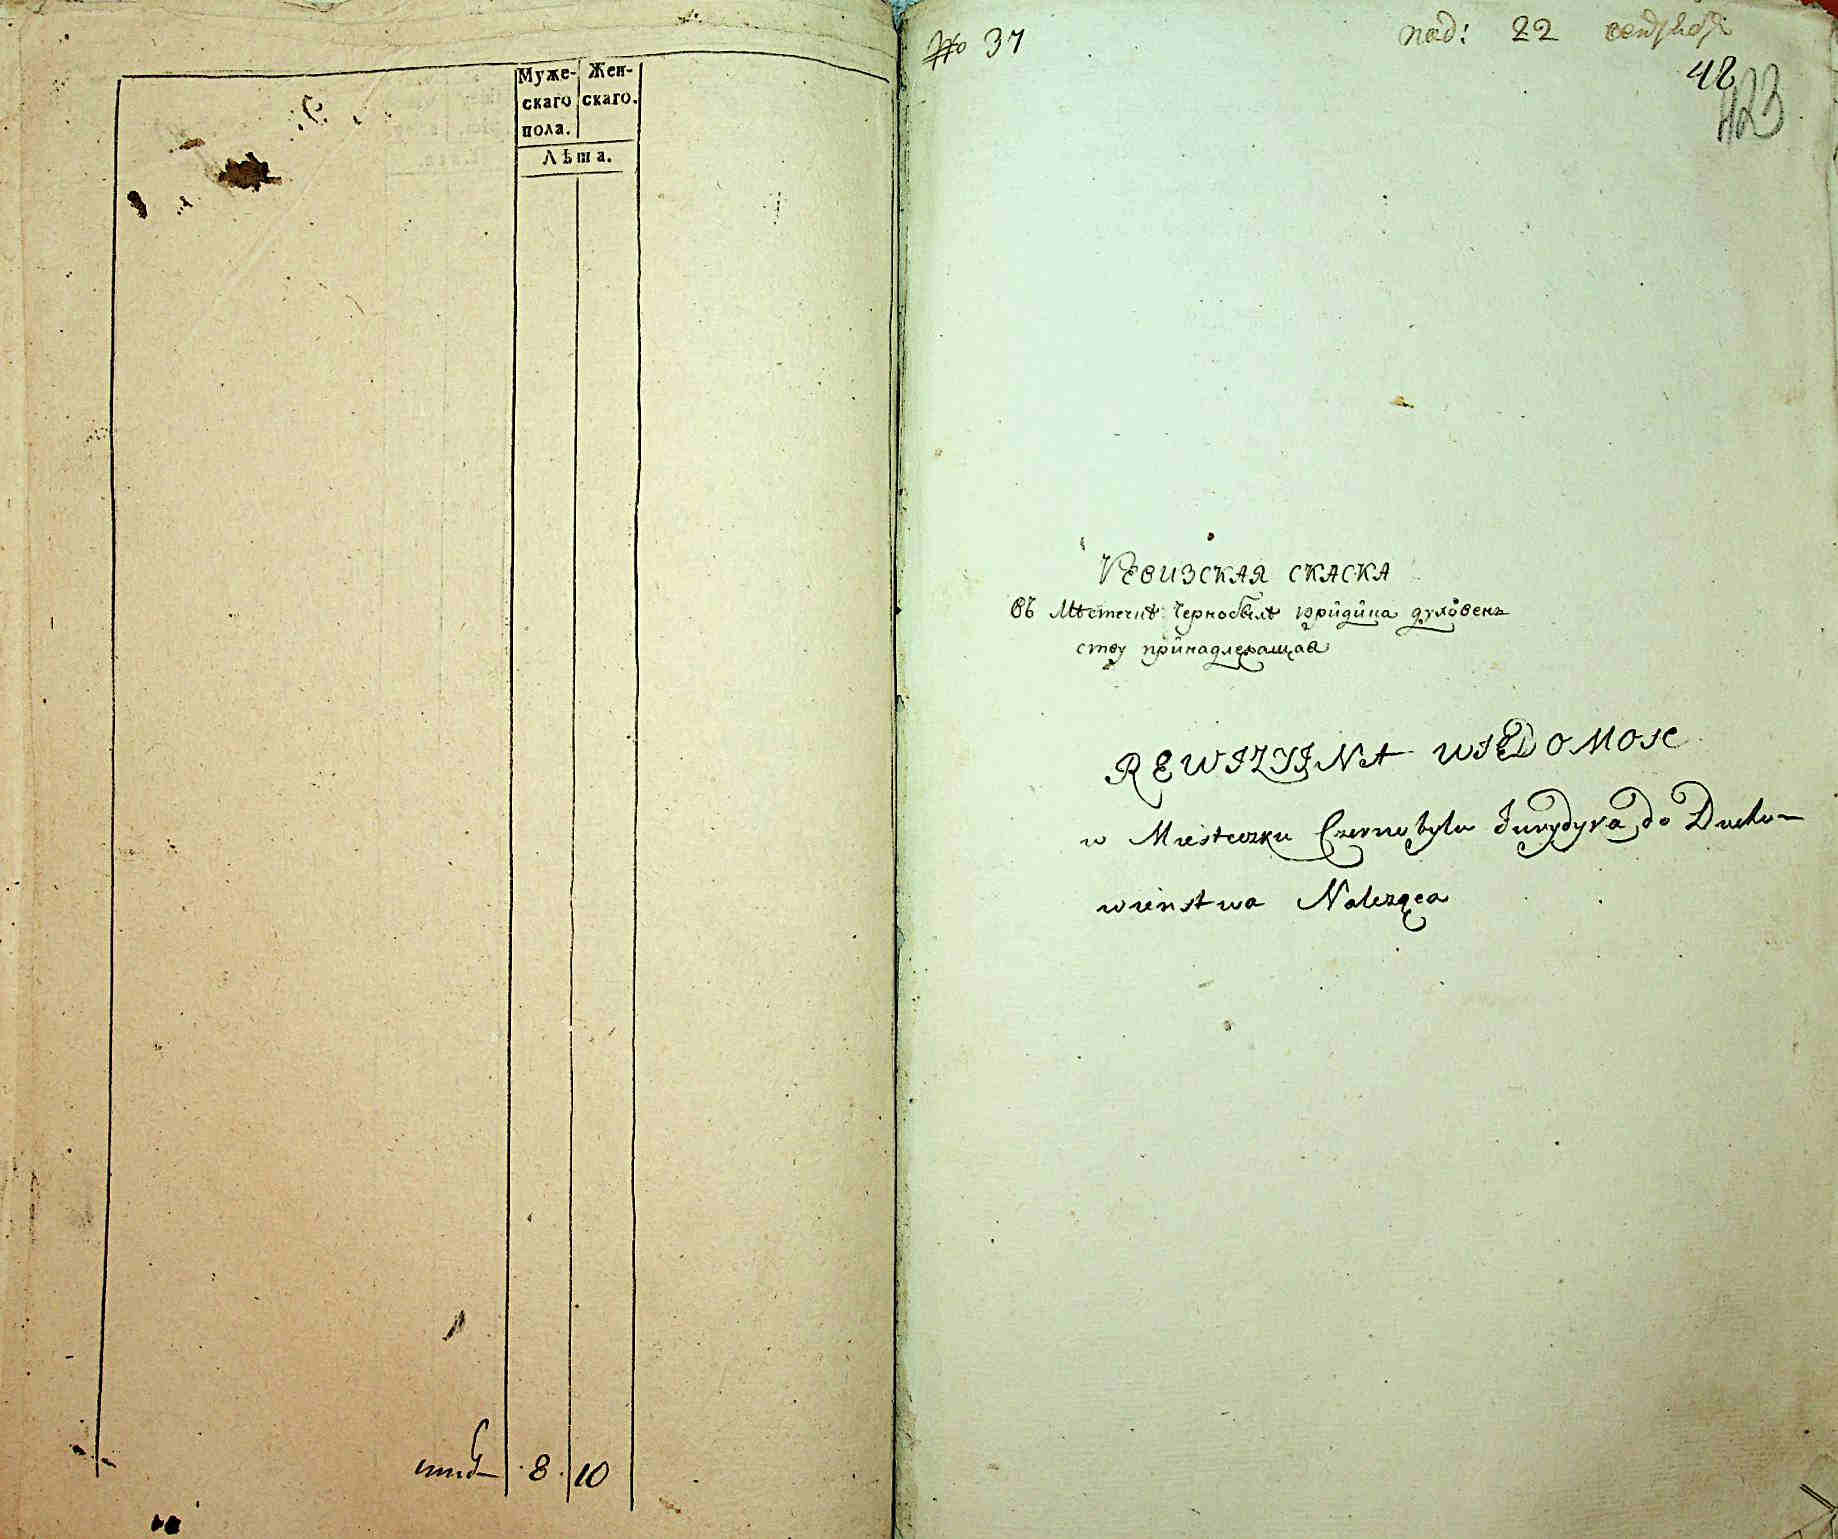 Муже- Жен-
скаго скаго.
пола.
Лѣта.
8. 10
No 37
под: 22 сентября
42
423
РЕВИЗСКАЯ СКАСКА
въ Мѣстечкѣ Чернобылѣ юридика духовен
ству принадлежащая
REWIZYINA WIEDOMOSC
w Miesteczku Czernobylu Jurydyka do Ducho-
wienstwa Należąca